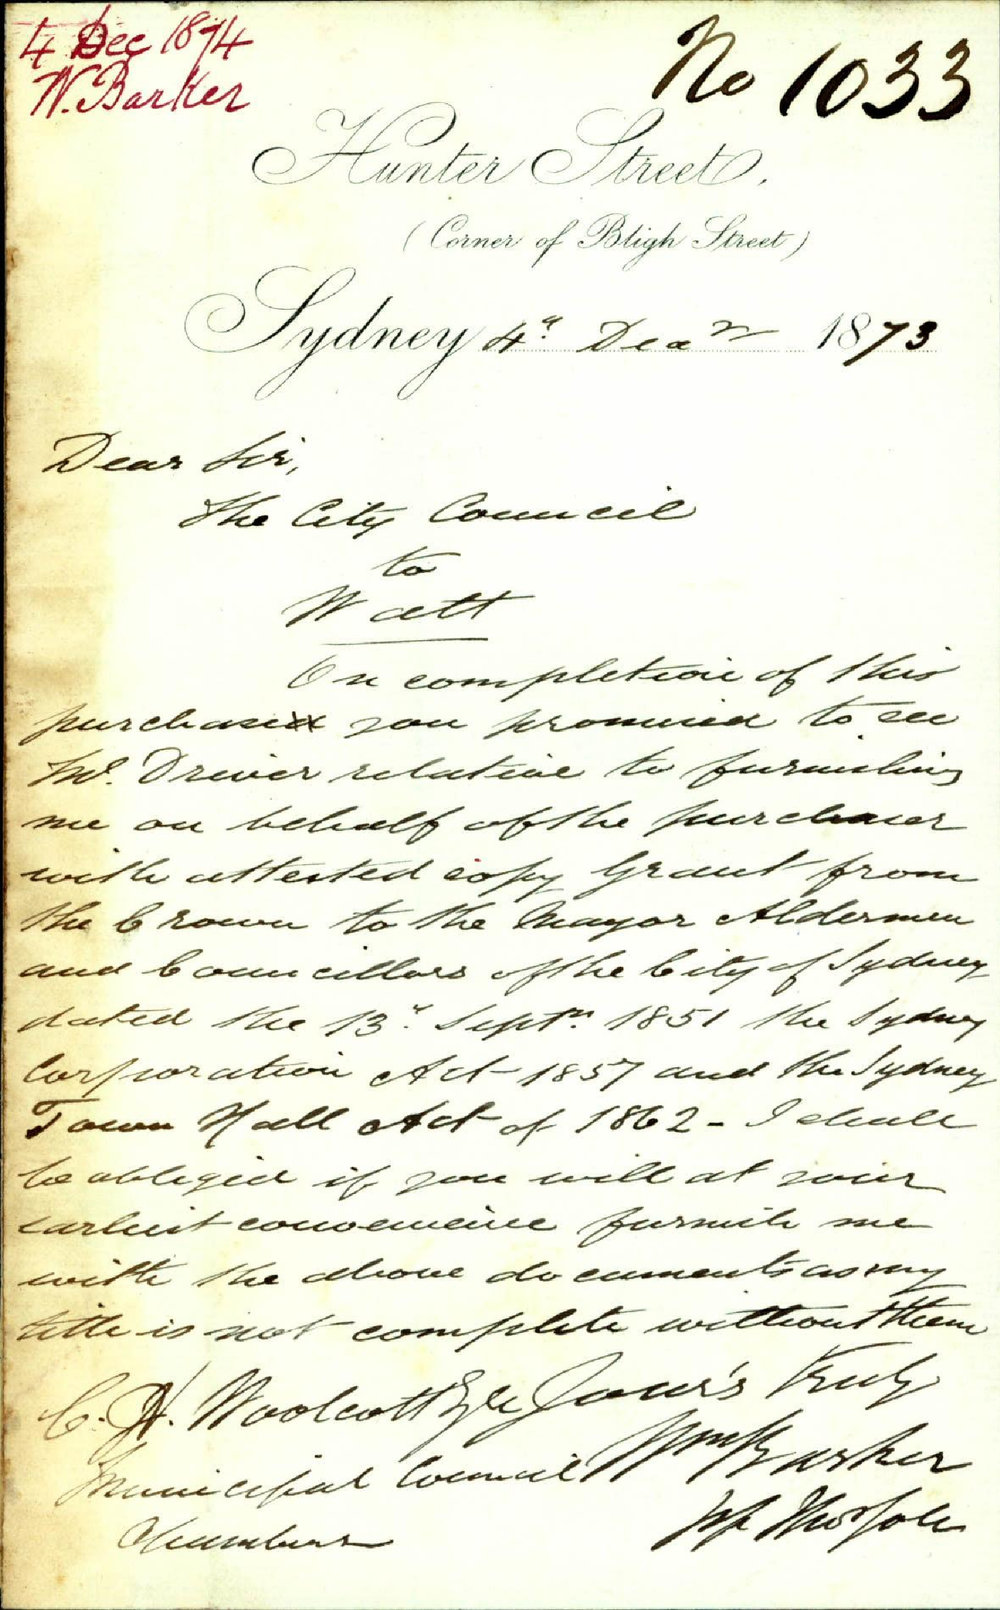 4 Dec 1874
W. Barker
No 1033
Hunter Street,
(Corner of Bligh Street)
Sydney 4th Decr 1873
Dear Sir,
The City Council
to
Watt
On completion of this
purchase you promised to see
Mr. Driver relative to furnishing
me on behalf of the purchaser
with attested copy Grant from
the Crown to the Mayor Aldermen
and Councillors of the City of Sydney
dated the 13th Septr. 1851 the Sydney
Corporation Act 1857 and the Sydney
Town Hall Act of 1862 - I shall
be obliged if you will at your
earliest convenience furnish me
with the above documents as my
title is not complete without them
Yours truly
C. H. Woolcott Esqre
Wm Barker
Municipal Council
Chambers